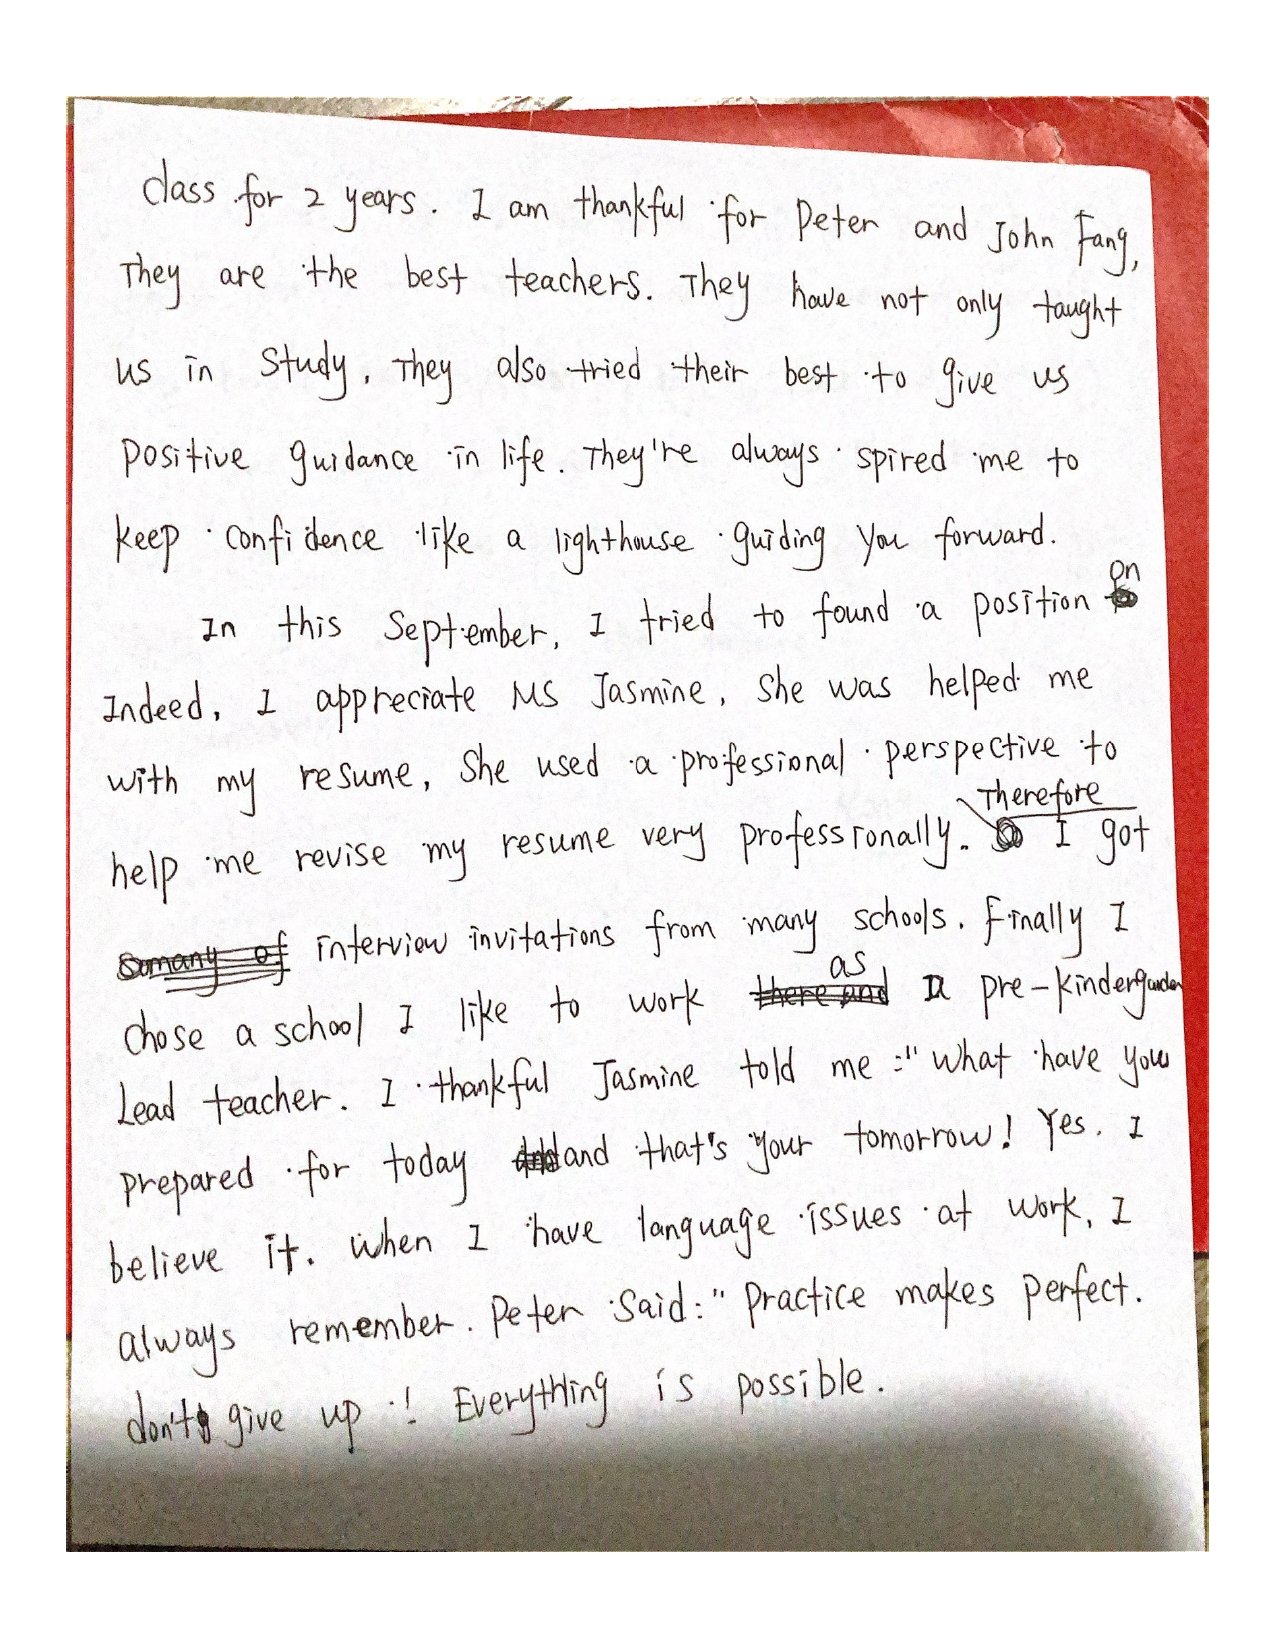 class for 2 years. I am thankful for Peter and John Fang,
They are the best teachers. They have not only taught
us in study, They also tried their best to give us
positive guidance in life. They're always spired me to
keep confidence like a lighthouse guiding you forward.
In this September, I tried to found a position on
Indeed, I appreciate MS Jasmine, She was helped me
with my resume, She used a professional perspective to
help me revise my resume very professionally. Therefore I got
interview invitations from many schools. Finally I
chose a school I like to work as a pre-kindergarden
Lead teacher. I thankful Jasmine told me :" what have you
prepared for today and that's your tomorrow! Yes. I
believe it. When I have language issues at work, I
always remember. Peter Said: " Practice makes perfect.
don't give up ! Everything is possible.